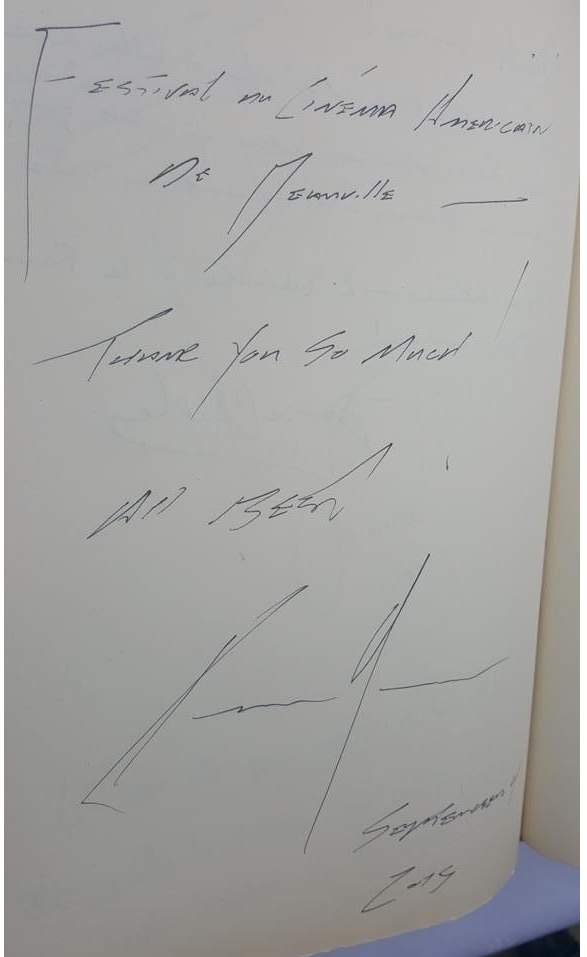 Festival du Cinéma Américain
De Deauville —
Thank You So Much!
All Best
September